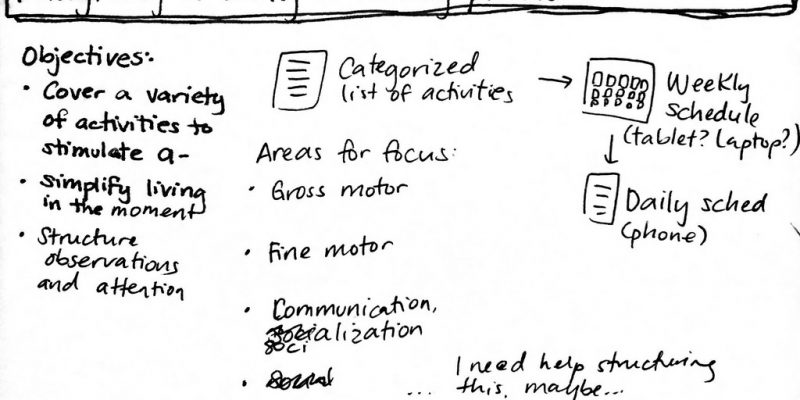 Objectives:
• Cover a variety
of activities to
stimulate a-
• Simplify living
in the moment
• Structure
observations
and attention
Categorized
list of activities
→
Weekly
schedule
(tablet? Laptop?)
↓
Daily sched
(phone)
Areas for focus:
• Gross motor
• Fine motor
• Communication,
socialization
•
... I need help structuring
this, maybe...